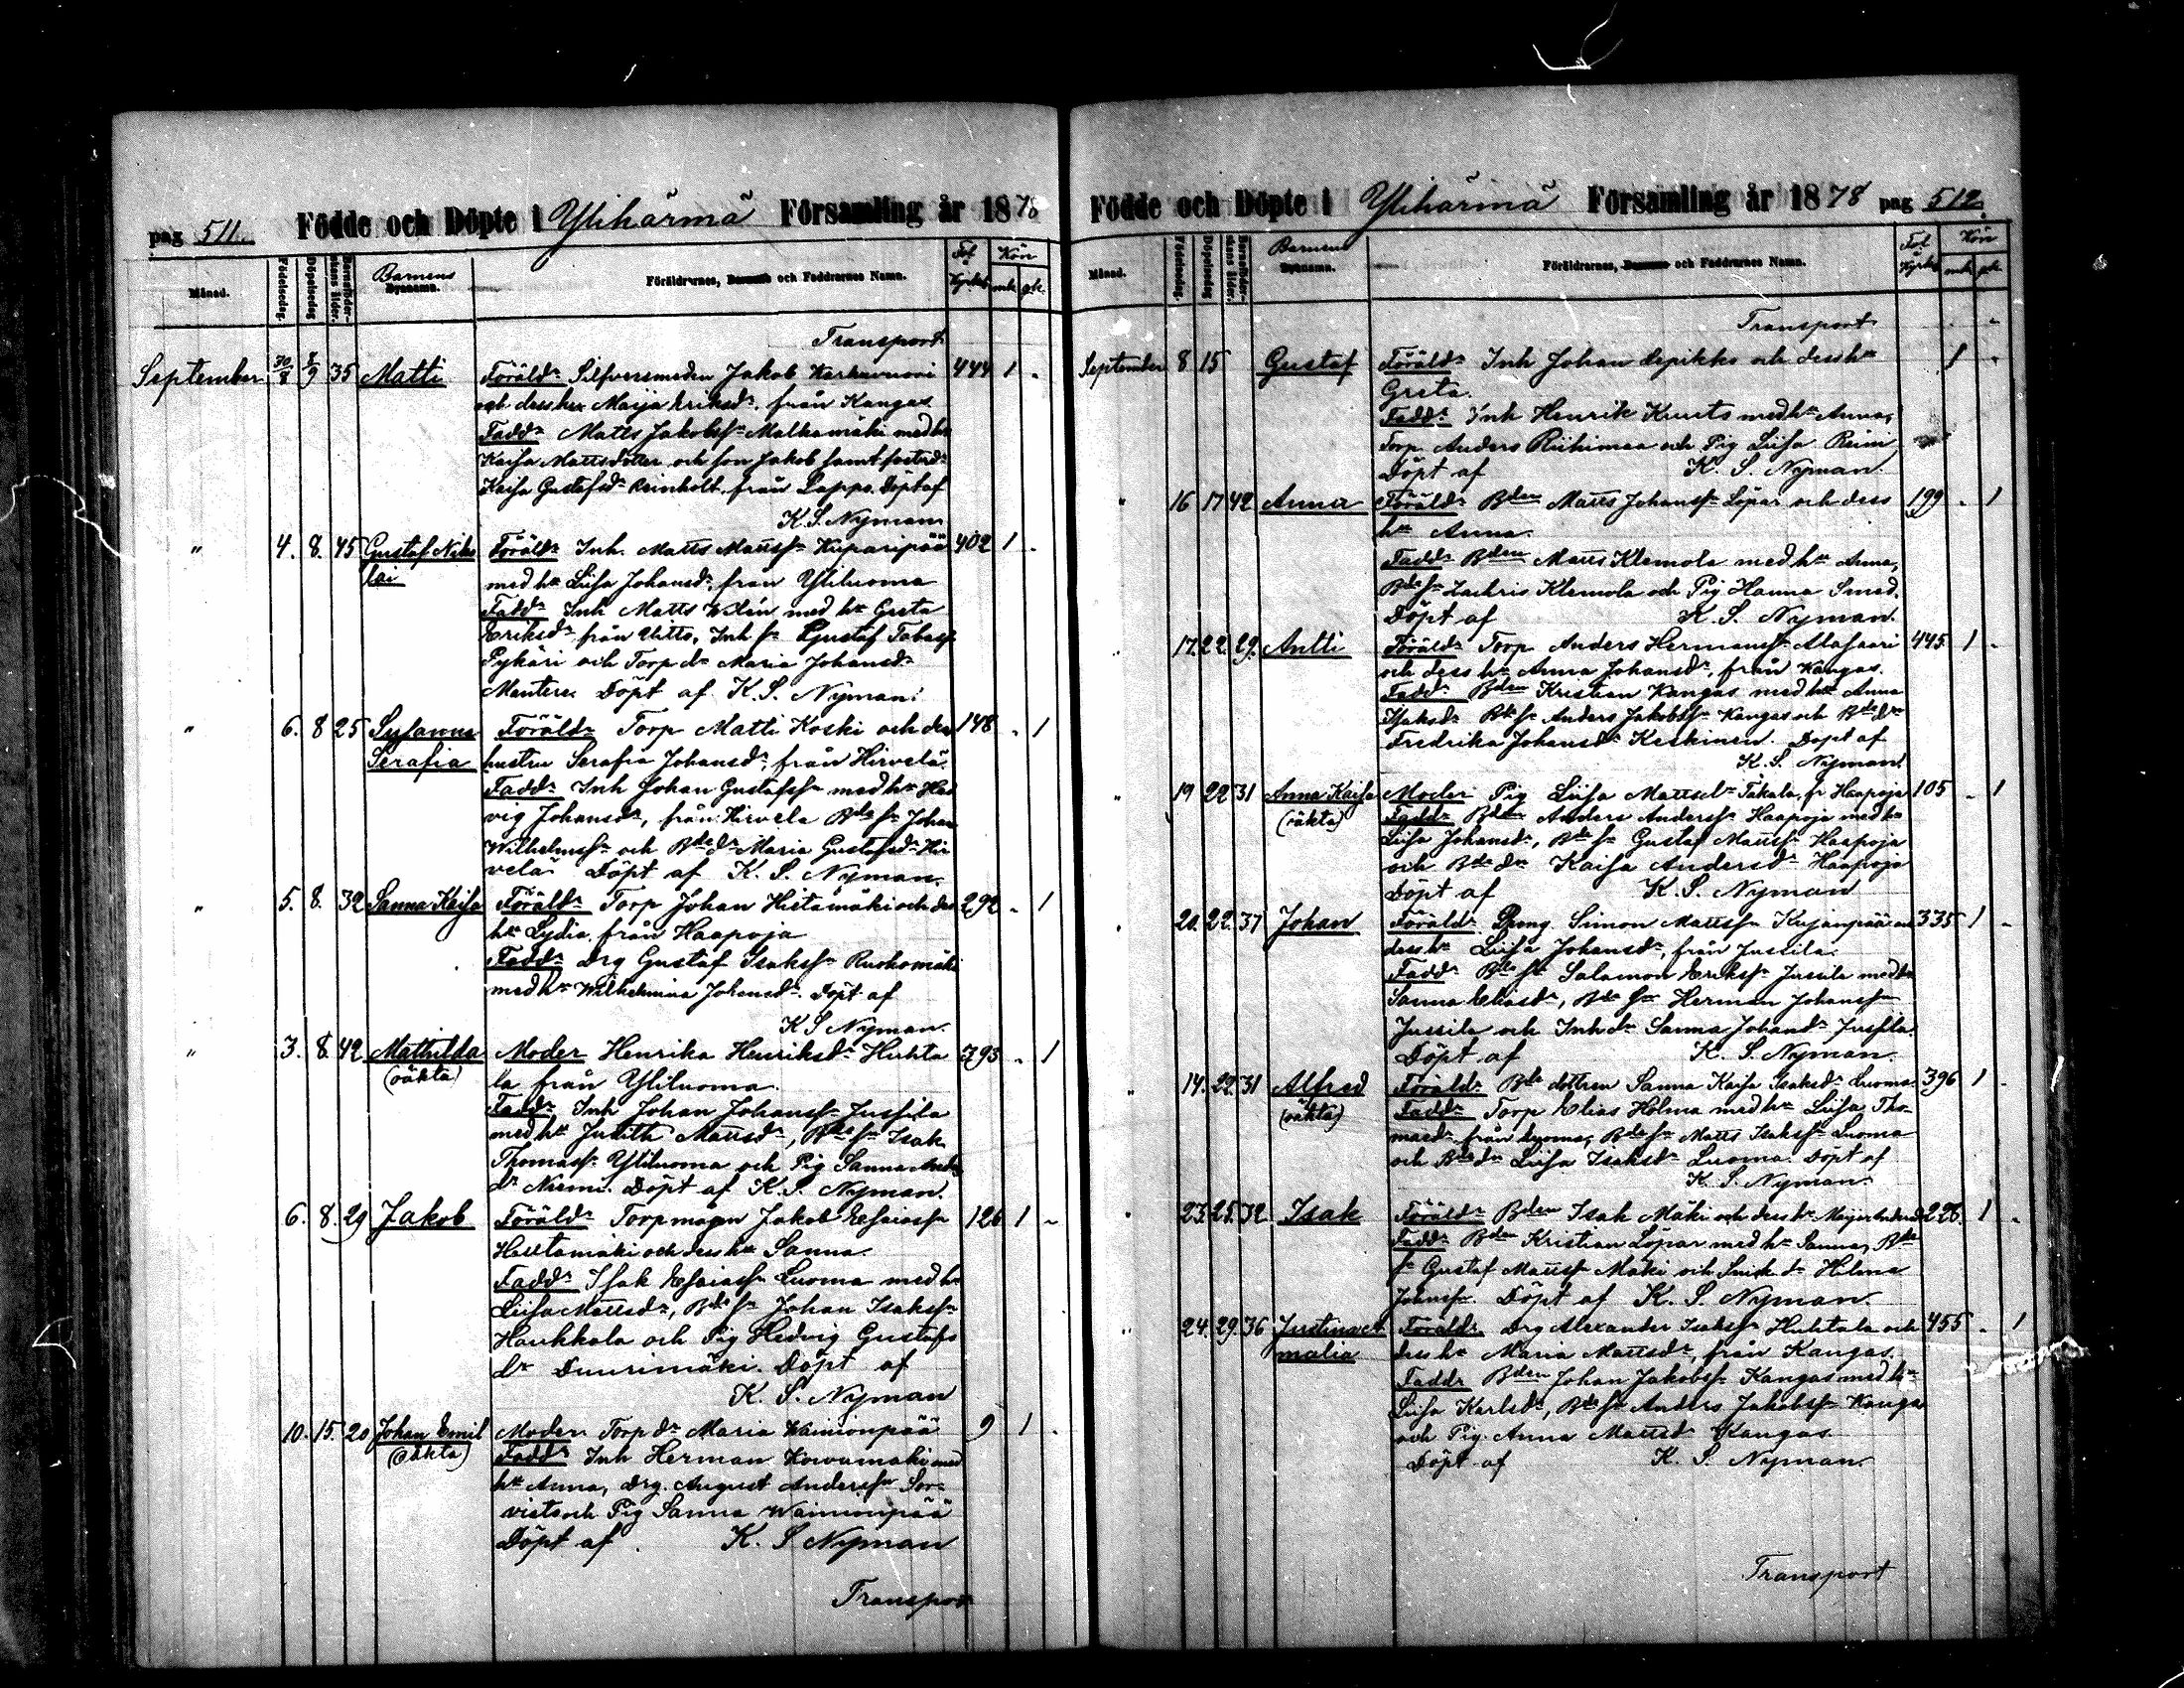 pag 511. Födde och Döpte i Ylihärmä Församling år 1878
Månad. Födelsedag. Döpelsedag Barnaföderskans ålder. Barnens Bynamn. Föräldrarnes, Barnens och Faddrarnes Namn. Fol i Kyrkb. Kön mk. qk.
Transport
September 30/8 8/9 35 Matti Föräld:r Silfversmeden Jakob 444 1 -
och dess hu Maija Eriksd:r från Kangas.
Fadd:r Matts Jakobss:n Malkamäki med hu
Kaisa Mattsdotter och son Jakob samt
Kaisa Gustafsd:r Reinholt från Lappo. Döpt af
K. S. Nyman
" 4. 8. 45 Gustaf Niko Föräld:r Inh. Matts Mattss:n Kuparipää 402 1 -
lai med h:u Liisa Johansd:r från Yliluoma
Fadd:r Inh Matts med h:u Greta
Eriksd:r från Inh s:n Gustaf
Pykäri och Torp d:r Maria Johansd:r
Mentere Döpt af K. S. Nyman.
" 6. 8 25 Susanna Föräld:r Torp Matti Koski och des 148 - 1
Serafia hustru Serafia Johansd:r från Hirvelä.
Fadd:r Inh Johan Gustafss:n med h:u Hed
vig Johansd:r, från Hirvelä B:de s:n Johan
Wilhelmss:n och B:de d:r Maria Gustafsd:r Hir
velä Döpt af K. S. Nyman.
" 5. 8. 32 Sanna Kaisa Föräld:r Torp Johan Hietamäki och des 292 - 1
h:u Lydia från Haapoja
Fadd:r Drg Gustaf Isakss:n Ruohomäki
med h:u Wilhelmina Johansd:r. Döpt af
K S Nyman.
" 3. 8. 42 Mathilda Moder Henrika Henriksd:r Huhta 393 - 1
(oäkta) la från Yliluoma.
Fadd:r Inh Johan Johanss:n Jussila
med h:u Judith Mattsd:r, B:de s:n Isak
Thomass:n Yliluoma och Pig Sanna
d:r Niemi. Döpt af K. S. Nyman.
6. 8. 29 Jakob Föräld:r Torpmågen Jakob Esaiass:n 126 1 -
Hautamäki och dess h:u Sanna.
Fadd:r Isak Esaiass:n Luoma med h:u
Liisa Mattsd:r, B:de s:n Johan Isakss:n
Haukkala och Pig Hedvig Gustafs
d:r Duurimäki. Döpt af
K. S. Nyman
10. 15. 20 Johan Emil Moder Torp d:r Maria Wainionpää 9 1 -
(oäkta) Fadd:r Inh Herman Koivumäki med
h:u Anna, Drg. August Anderss:n Sor
vist och Pig Sanna Wainionpää
Döpt af K. S Nyman
Transport
Födde och Döpte i Ylihärmä Församling år 1878 pag 512.
Månad. Födelsedag. Döpelsedag Barnaföderskans ålder. Barnens Bynamn. Föräldrarnes, Barnens och Faddrarnes Namn. Fol i Kyrkb. Kön mk. qk.
Transport -
September 8 15 Gustaf Föräld:r Inh Johan Lepikko och dess h:u 1 -
Greta.
Fadd:r Inh Henrik med h:u Anna,
Torp Anders Riihimaa och Pig Liisa
Döpt af K. S. Nyman.
" 16 17 42 Anna Föräld:r B:den Matts Johanss:n Löpar och dess 199 - 1
h:u Anna.
Fadd:r B:den Matts Klemola med h:u Anna,
B:de s:n Zachris Klemola och Pig Hanna Smed.
Döpt af K. S. Nyman.
17. 22. 29. Antti Föräld:r Torp Anders Hermanss:n Alasaari 445. 1 -
och dess h:u Anna Johansd:r, från Kangas.
Fadd:r B:den Kristian Kangas med h:u Anna
Isaksd:r B:de s:n Anders Jakobss:n Kangas och B:de d:r
Fredrika Johansd:r Keskinen. Döpt af
K. S. Nyman
" 19 22 31 Anna Kaisa Moder Pig Liisa Mattsd:r Takala, fr Haapoja 105 - 1
(oäkta) Fadd:r B:den Anders Anderss:n Haapoja med h:u
Liisa Johansd:r, B:de s:n Gustaf Mattss:n Haapoja
och B:de d:r Kaisa Andersd:r Haapoja
Döpt af K. S. Nyman
" 20. 22. 37 Johan Föräld:r Simon Mattss:n Kujanpää och 335 1 -
dess h:u Liisa Johansd:r, från Jussila.
Fadd:r B:de s:n Salamon Erikss:n Jussila med h:u
Sanna Eliasd:r, B:de s:n Herman Johanss:n
Jussila och Inh d:r Sanna Johansd:r Jussila.
Döpt af K. S. Nyman.
" 14. 22. 31 Alfred Föräld:r B:de dottren Sanna Kaisa Isaksd:r Luoma. 396 1 -
(oäkta) Fadd:r Torp Elias Holma med h:u Liisa Tho-
masd:r från Luoma, B:de s:n Matts Isakss:n Luoma
och B:de d:r Liisa Isaksd:r Luoma. Döpt af
K. S. Nyman.
" 23. 25. 32 Isak Föräld:r B:den Isak Mäki och dess h:u Maija Andersd 226. 1 -
Fadd:r B:den Kristian Löpar med h:u Sanna, B:de
s:n Gustaf Mattss:n Mäki och d:r Helena
Döpt af K. S. Nyman.
" 24. 29. 36 Justina A Föräld:r Drg Alexander Isakss:n Huhtala och 455 - 1
malia dess h:u Maria Mattsd:r, från Kangas.
Fadd:r B:den Johan Jakobss:n Kangas med h:u
Liisa Karlsd:r, B:de s:n Anders Jakobss:n Kanga
och Pig. Anna Mattsd:r Kangas
Döpt af K. S. Nyman.
Transport